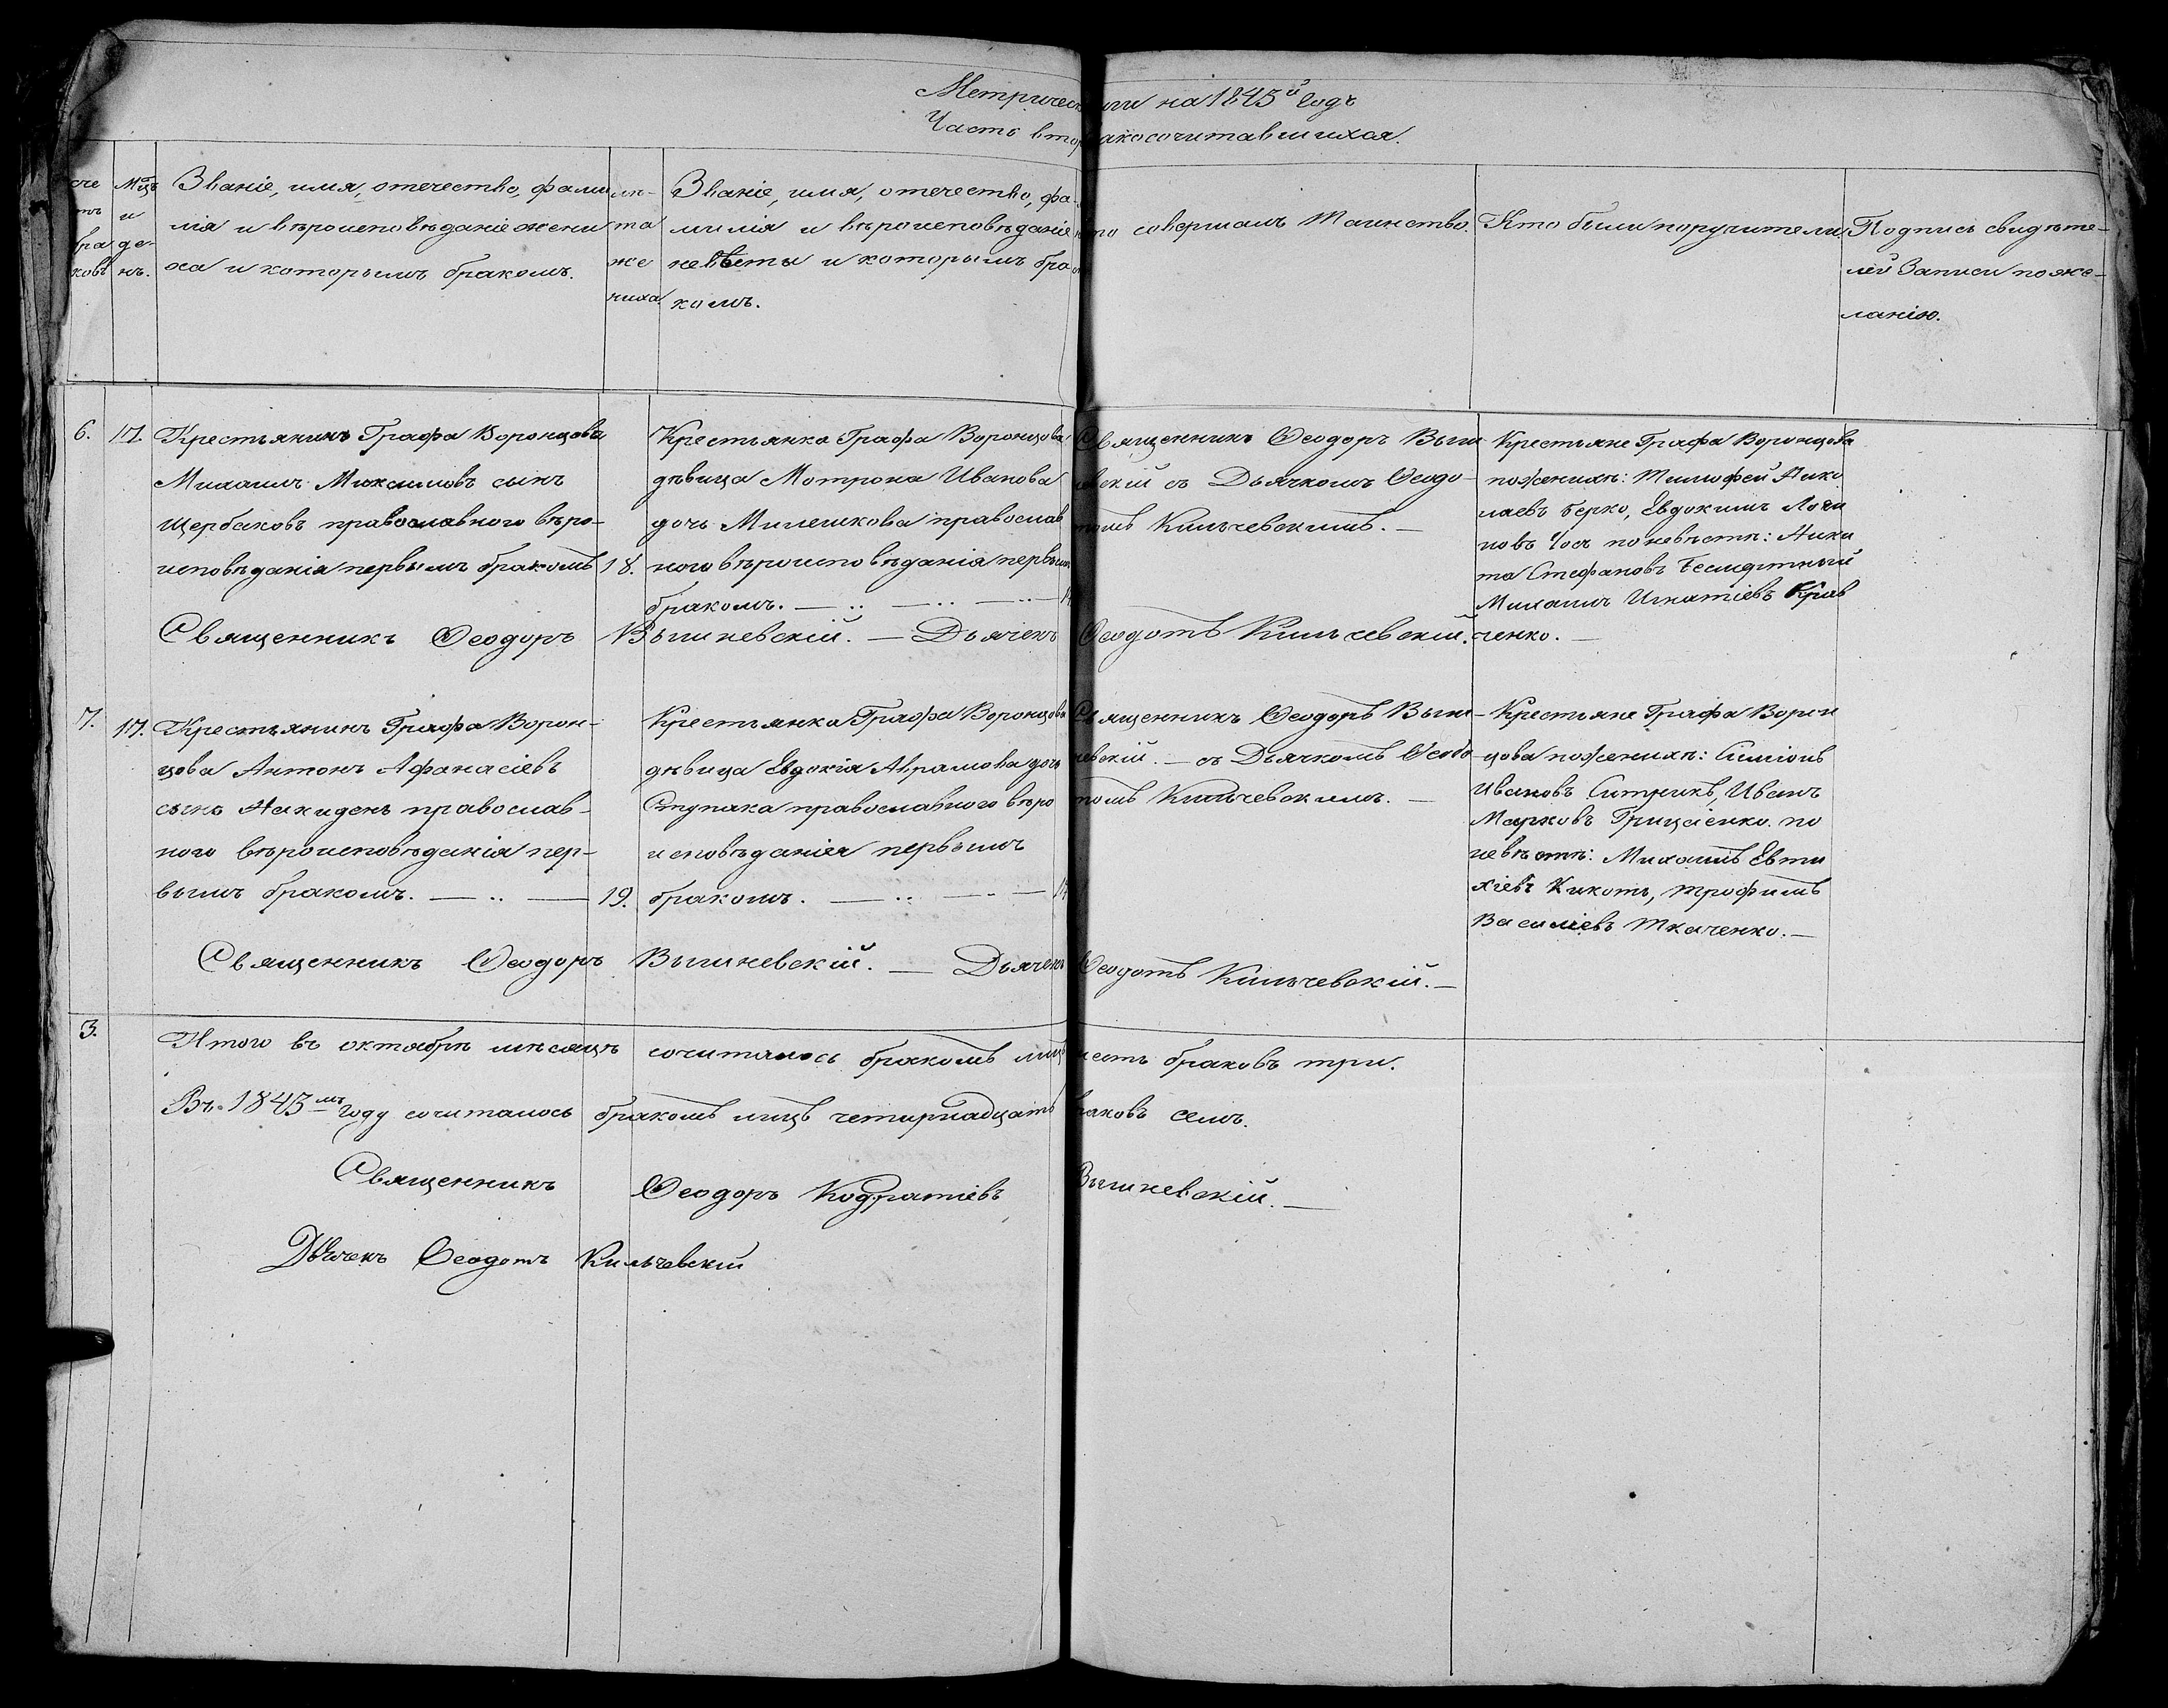 Метричес ги на 1845й Годъ
Часть втор акосочитавшихся.
сче
тъ
бра
ковъ
Мцъ
и
де-
нь.
Званіе, имя, отечество, фами
лія и вѣроисповѣданіе жени
ха и которымъ бракомъ.
лѣ-
та
же
ниха
Званіе, имя, отечество, фа-
милія и вѣроисповѣданіе
невѣсты и которымъ бра
комъ.
то совершалъ Таинство.
Кто были поручители.
Подпись свидѣте-
лей Записи по же-
ланію.
6. 17.
Крестьянинъ Графа Воронцова
Михаилъ Максимовъ сынъ
Щербаковъ православного вѣро-
исповѣданія первымъ бракомъ
18.
Крестьянка Графа Воронцова
дѣвица Мотрона Иванова
дочь Милешкова православ
ного вѣроисповѣданія первымъ
бракомъ.
Священникъ Ѳеодоръ Выш
невскій съ Дьячкомъ Ѳеодо-
томъ Кильчевскимъ.
Крестьяне Графа Воронцова
по женихѣ: Тимофей Нико
лаевъ Берко, Евдокимъ Логи
новъ по невѣстѣ: Ники
та Стефановъ
Михаилъ Игнатіевъ Крав
ченко.
Священникъ Ѳеодоръ Вышневскій. Дьячекъ Ѳеодотъ Кильчевскій.
7. 17.
Крестьянинъ Графа Ворон-
цова Антонъ Афанасіевъ
сынъ Накиденъ православ-
ного вѣроисповѣданія пер-
вымъ бракомъ.
19.
Крестьянка Графа Воронцова
дѣвица Евдокія Аврамова дочь
Ступака православного вѣро
исповѣданія первымъ
бракомъ.
Священникъ Ѳеодоръ Выш-
невскій. съ Дьячкомъ Ѳеодо
томъ Кильчевскимъ.
Крестьяне Графа Ворон
цова по женихѣ: Симіонъ
Ивановъ Ситникъ, Иванъ
Марковъ Грицаенко. по
невѣстѣ: Михаилъ Евти
хіевъ Кикоть, Трофимъ
Василіевъ Ткаченко.
Священникъ Ѳеодоръ Вышневскій. Дьячекъ Ѳеодотъ Кильчевскій.
3.
Итого въ октябрѣ мѣсяцѣ сочиталось бракомъ лицъ шесть браковъ три.
Въ 1845мъ году сочиталось бракомъ лицъ четирнадцать браковъ семъ.
Священникъ Ѳеодоръ Кодратіевъ Вышневскій.
Дьячекъ Ѳеодотъ Кильчевскій